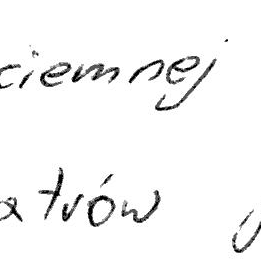 ciemnej
atrów